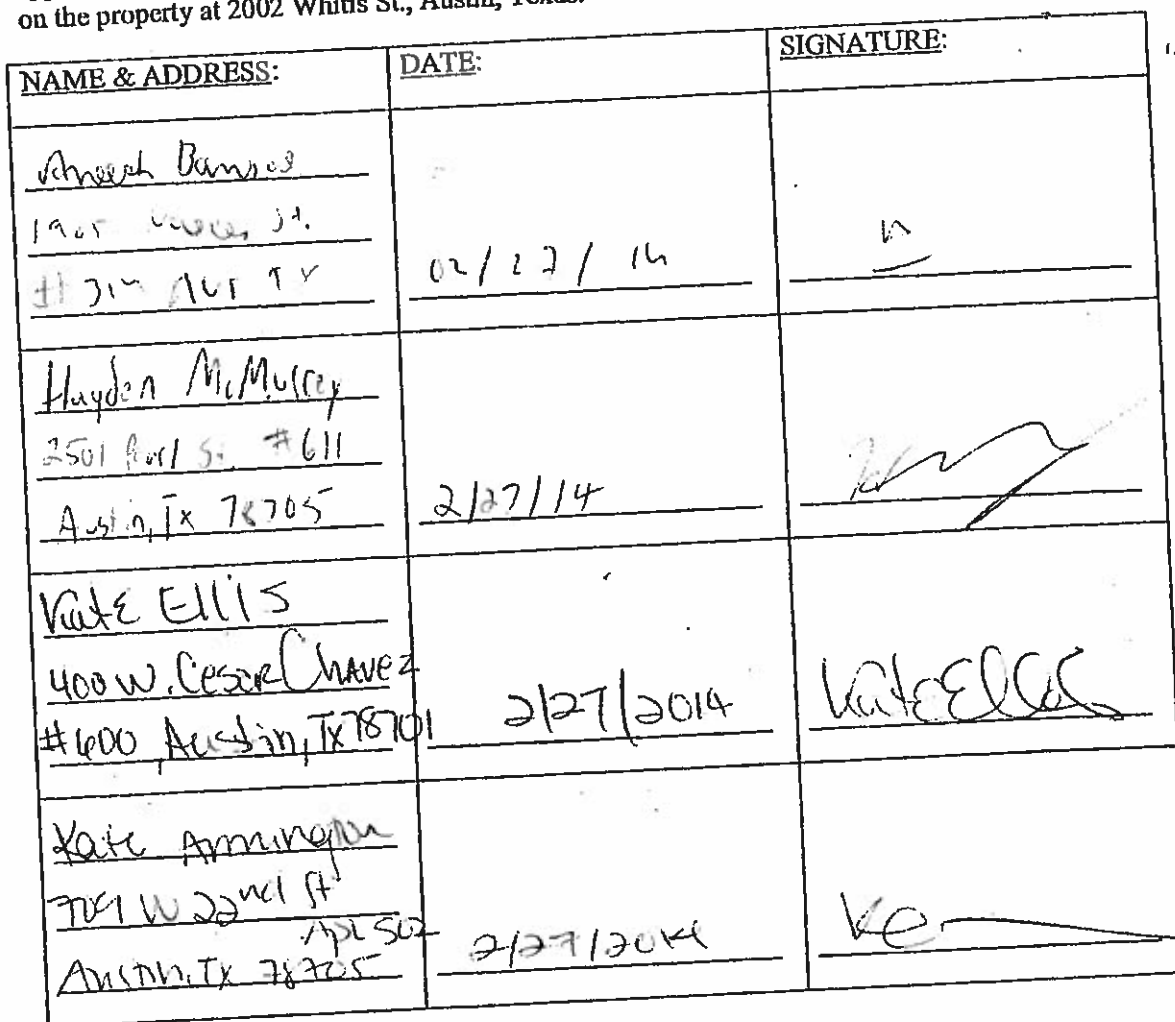 on the property at 2002 Whitis St., Austin, Texas.
NAME & ADDRESS: DATE: SIGNATURE:
02/27/14
Hayden McMurrey
2501 #611
Austin, Tx 78705 2/27/14
Kate Ellis
400 W. Cesar Chavez
#600, Austin, Tx 78701 2/27/2014 Kate Ellis
Kate Armington
709 W 22nd St
Apt 502
Austin, Tx 78705 2/27/2014